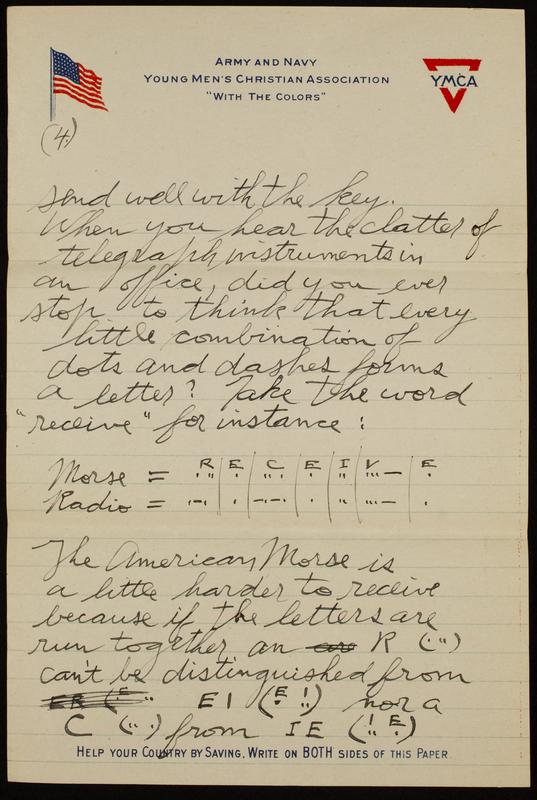 ARMY AND NAVY
YOUNG MEN'S CHRISTIAN ASSOCIATION
"WITH THE COLORS"
YMCA
(4)
send well with the key.
When you hear the clatter of
telegraph instruments in
an office, did you ever
stop to think that every
little combination of
dots and dashes forms
a letter? Take the word
"receive" for instance:
R E C E I V E
Morse = . .. | . | .. . | . | .. | ...— | .
Radio = .-. | . | -.-. | . | .. | ...— | .
The American Morse is
a little harder to receive
because if the letters are
run together an are R (. ..)
can't be distinguished from
ER (E EI (E I) nor a
C (.. .) from IE (I E)
HELP YOUR COUNTRY BY SAVING. WRITE ON BOTH SIDES OF THIS PAPER.